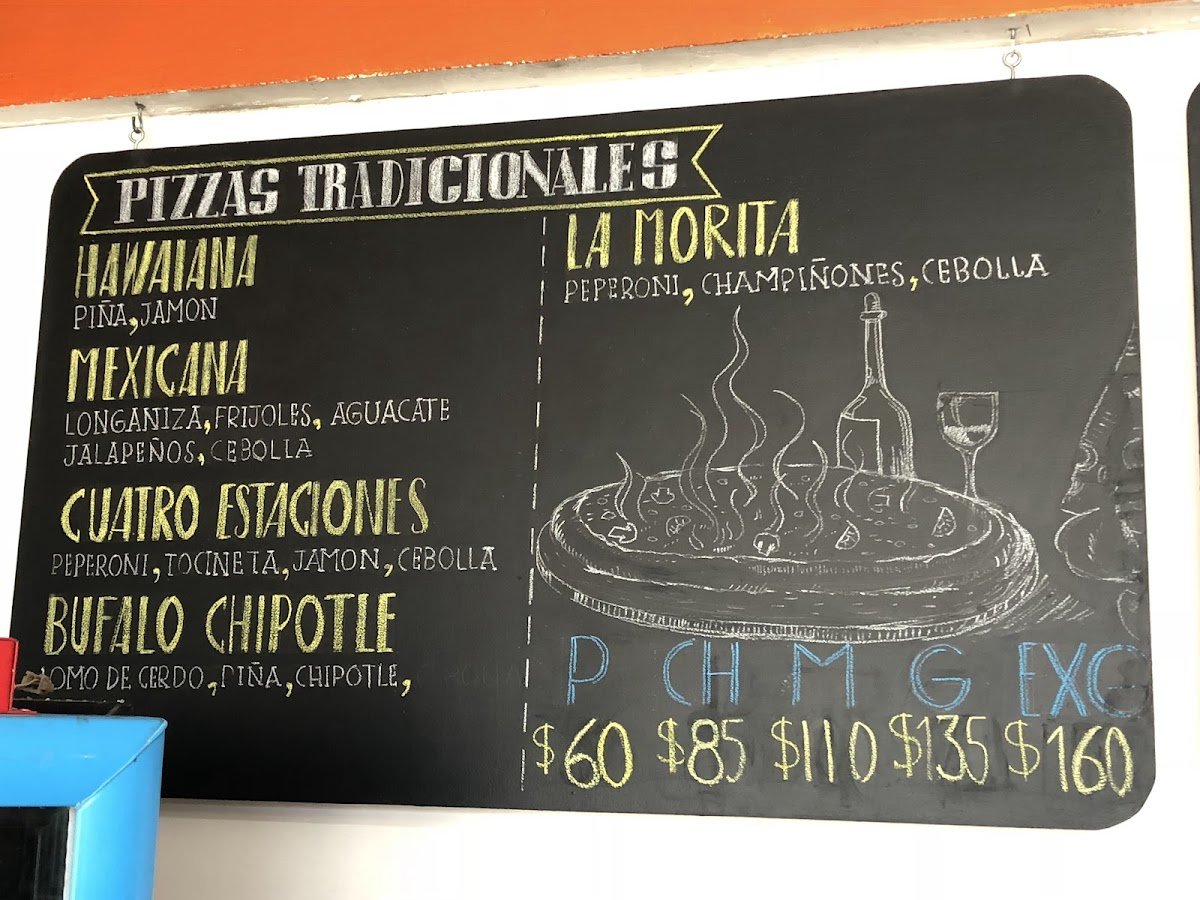 PIZZAS TRADICIONALES
HAWAIANA
PIÑA, JAMON
MEXICANA
LONGANIZA, FRIJOLES, AGUACATE
JALAPEÑOS, CEBOLLA
CUATRO ESTACIONES
PEPERONI, TOCINETA, JAMON, CEBOLLA
BUFALO CHIPOTLE
LOMO DE CERDO, PIÑA, CHIPOTLE,
LA MORITA
PEPERONI, CHAMPIÑONES, CEBOLLA
P CH M G EXG
$60 $85 $110 $135 $160